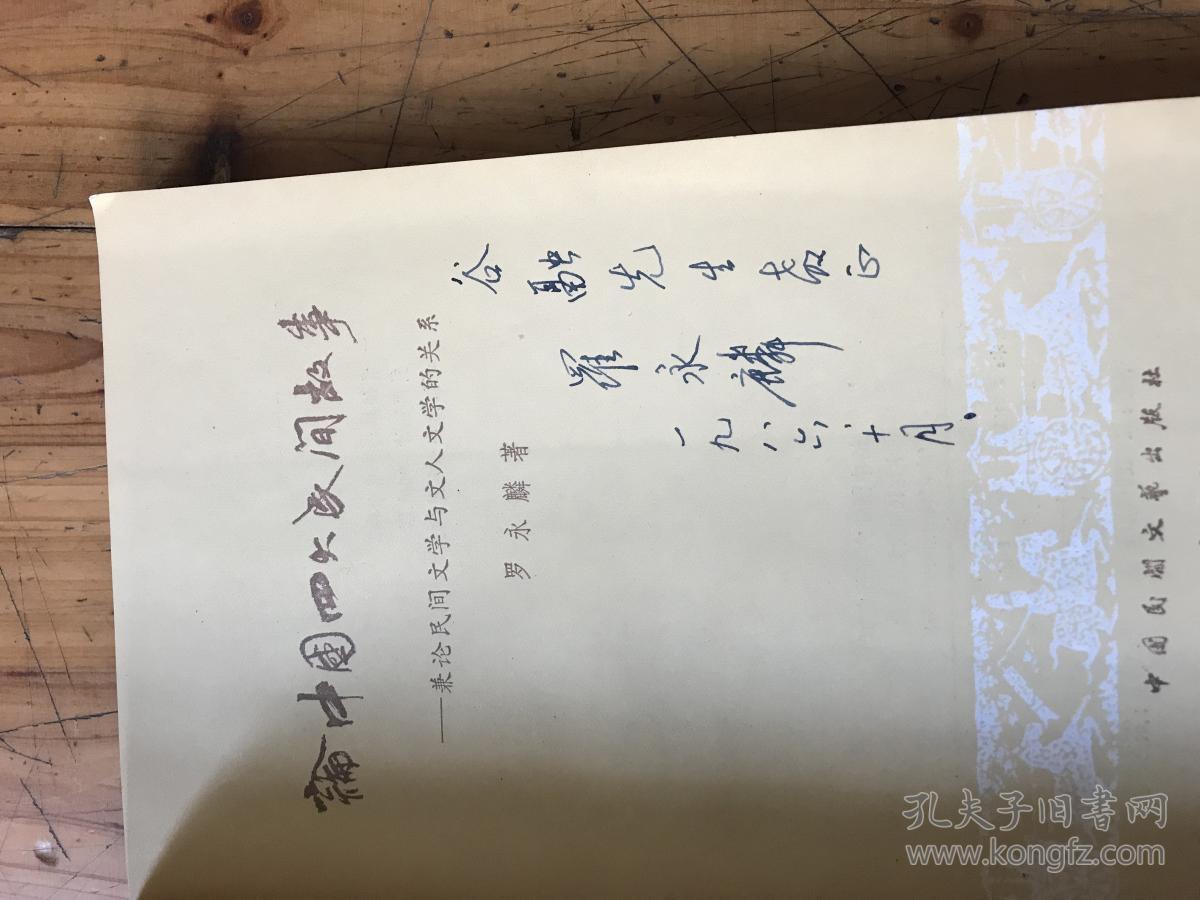 論中國四大民间故事
——兼论民间文学与文人文学的关系
罗永麟 著
谷融先生教正
羅永麟
一九八六、十月.
中国民间文藝出版社
孔夫子旧书网
www.kongfz.com